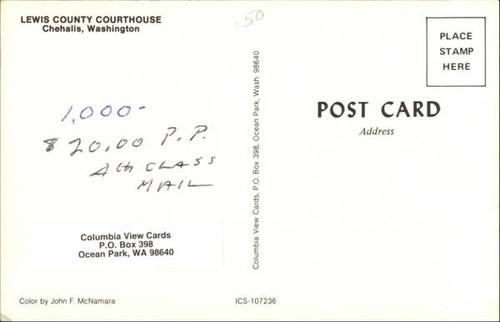 LEWIS COUNTY COURTHOUSE
Chehalis, Washington
.50
PLACE
STAMP
HERE
POST CARD
Address
1,000-
$20.00 P.P.
4th CLASS
MAIL
Columbia View Cards, P.O. Box 398, Ocean Park, Wash. 98640
Columbia View Cards
P.O. Box 398
Ocean Park, WA 98640
Color by John F. McNamara
ICS-107236